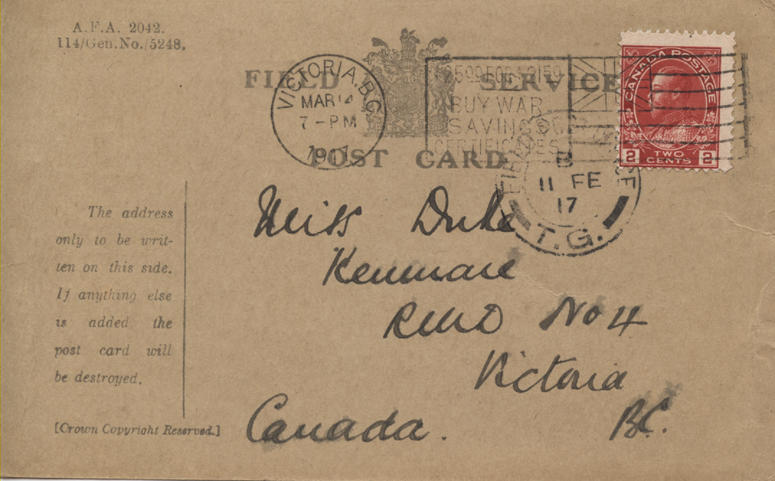 A.F.A. 2042.
114/Gen.No./5248.
FIELD SERVICE
POST CARD
VICTORIA, B.C.
MAR 14
7 - PM
1917
$25 FOR $21.50
BUY WAR
SAVINGS
CERTIFICATES
CANADA POSTAGE
2 TWO CENTS 2
FIELD POST OFFICE
B
11 FE
17
T.G.
The address
only to be writ-
ten on this side.
If anything else
is added the
post card will
be destroyed.
[Crown Copyright Reserved.]
Miss Duke
Kenmare
RMD No 4
Victoria
Canada. B.C.